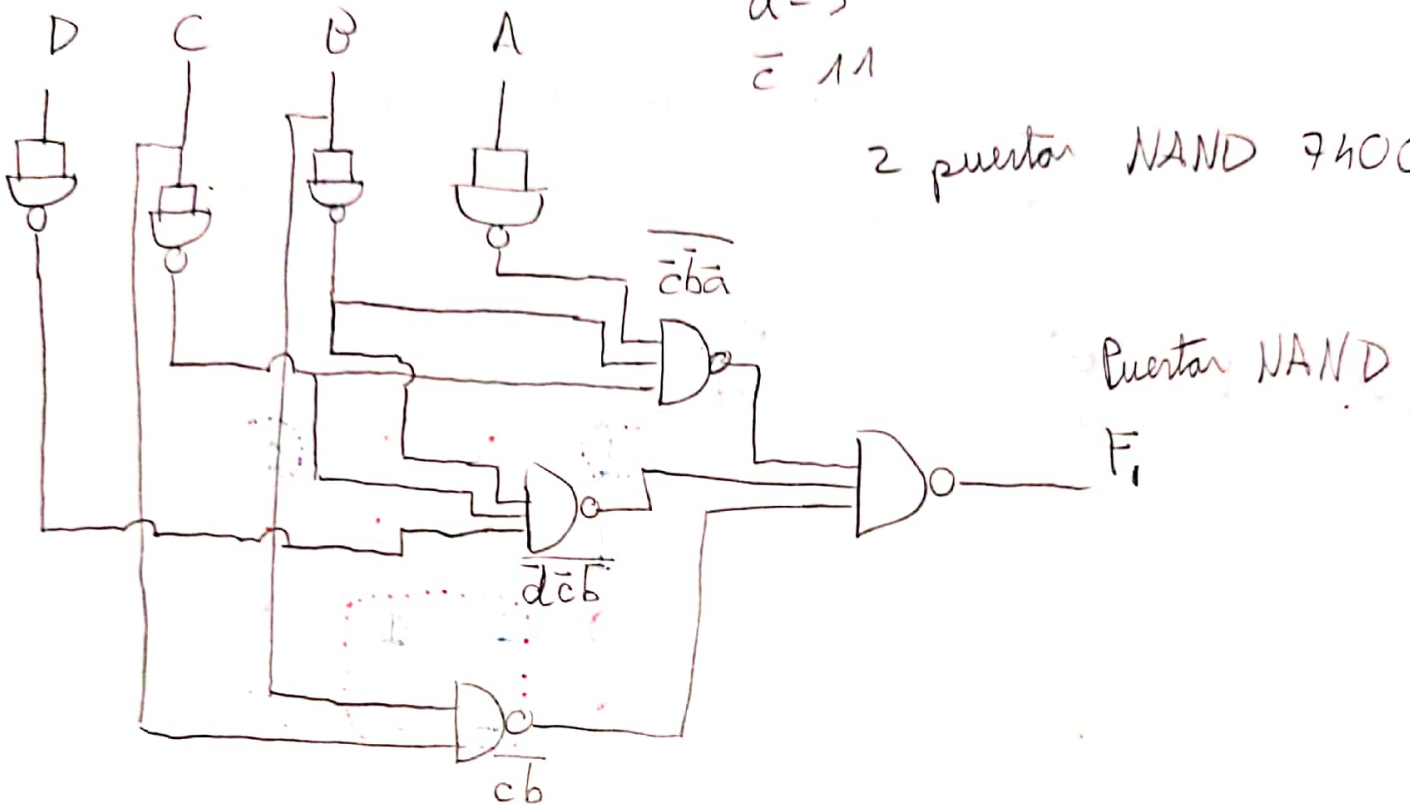 D C B A
c̄ 11
2 puertas NAND 7400
c̄b̄ā
Puertas NAND
F₁
d̄c̄b̄
cb